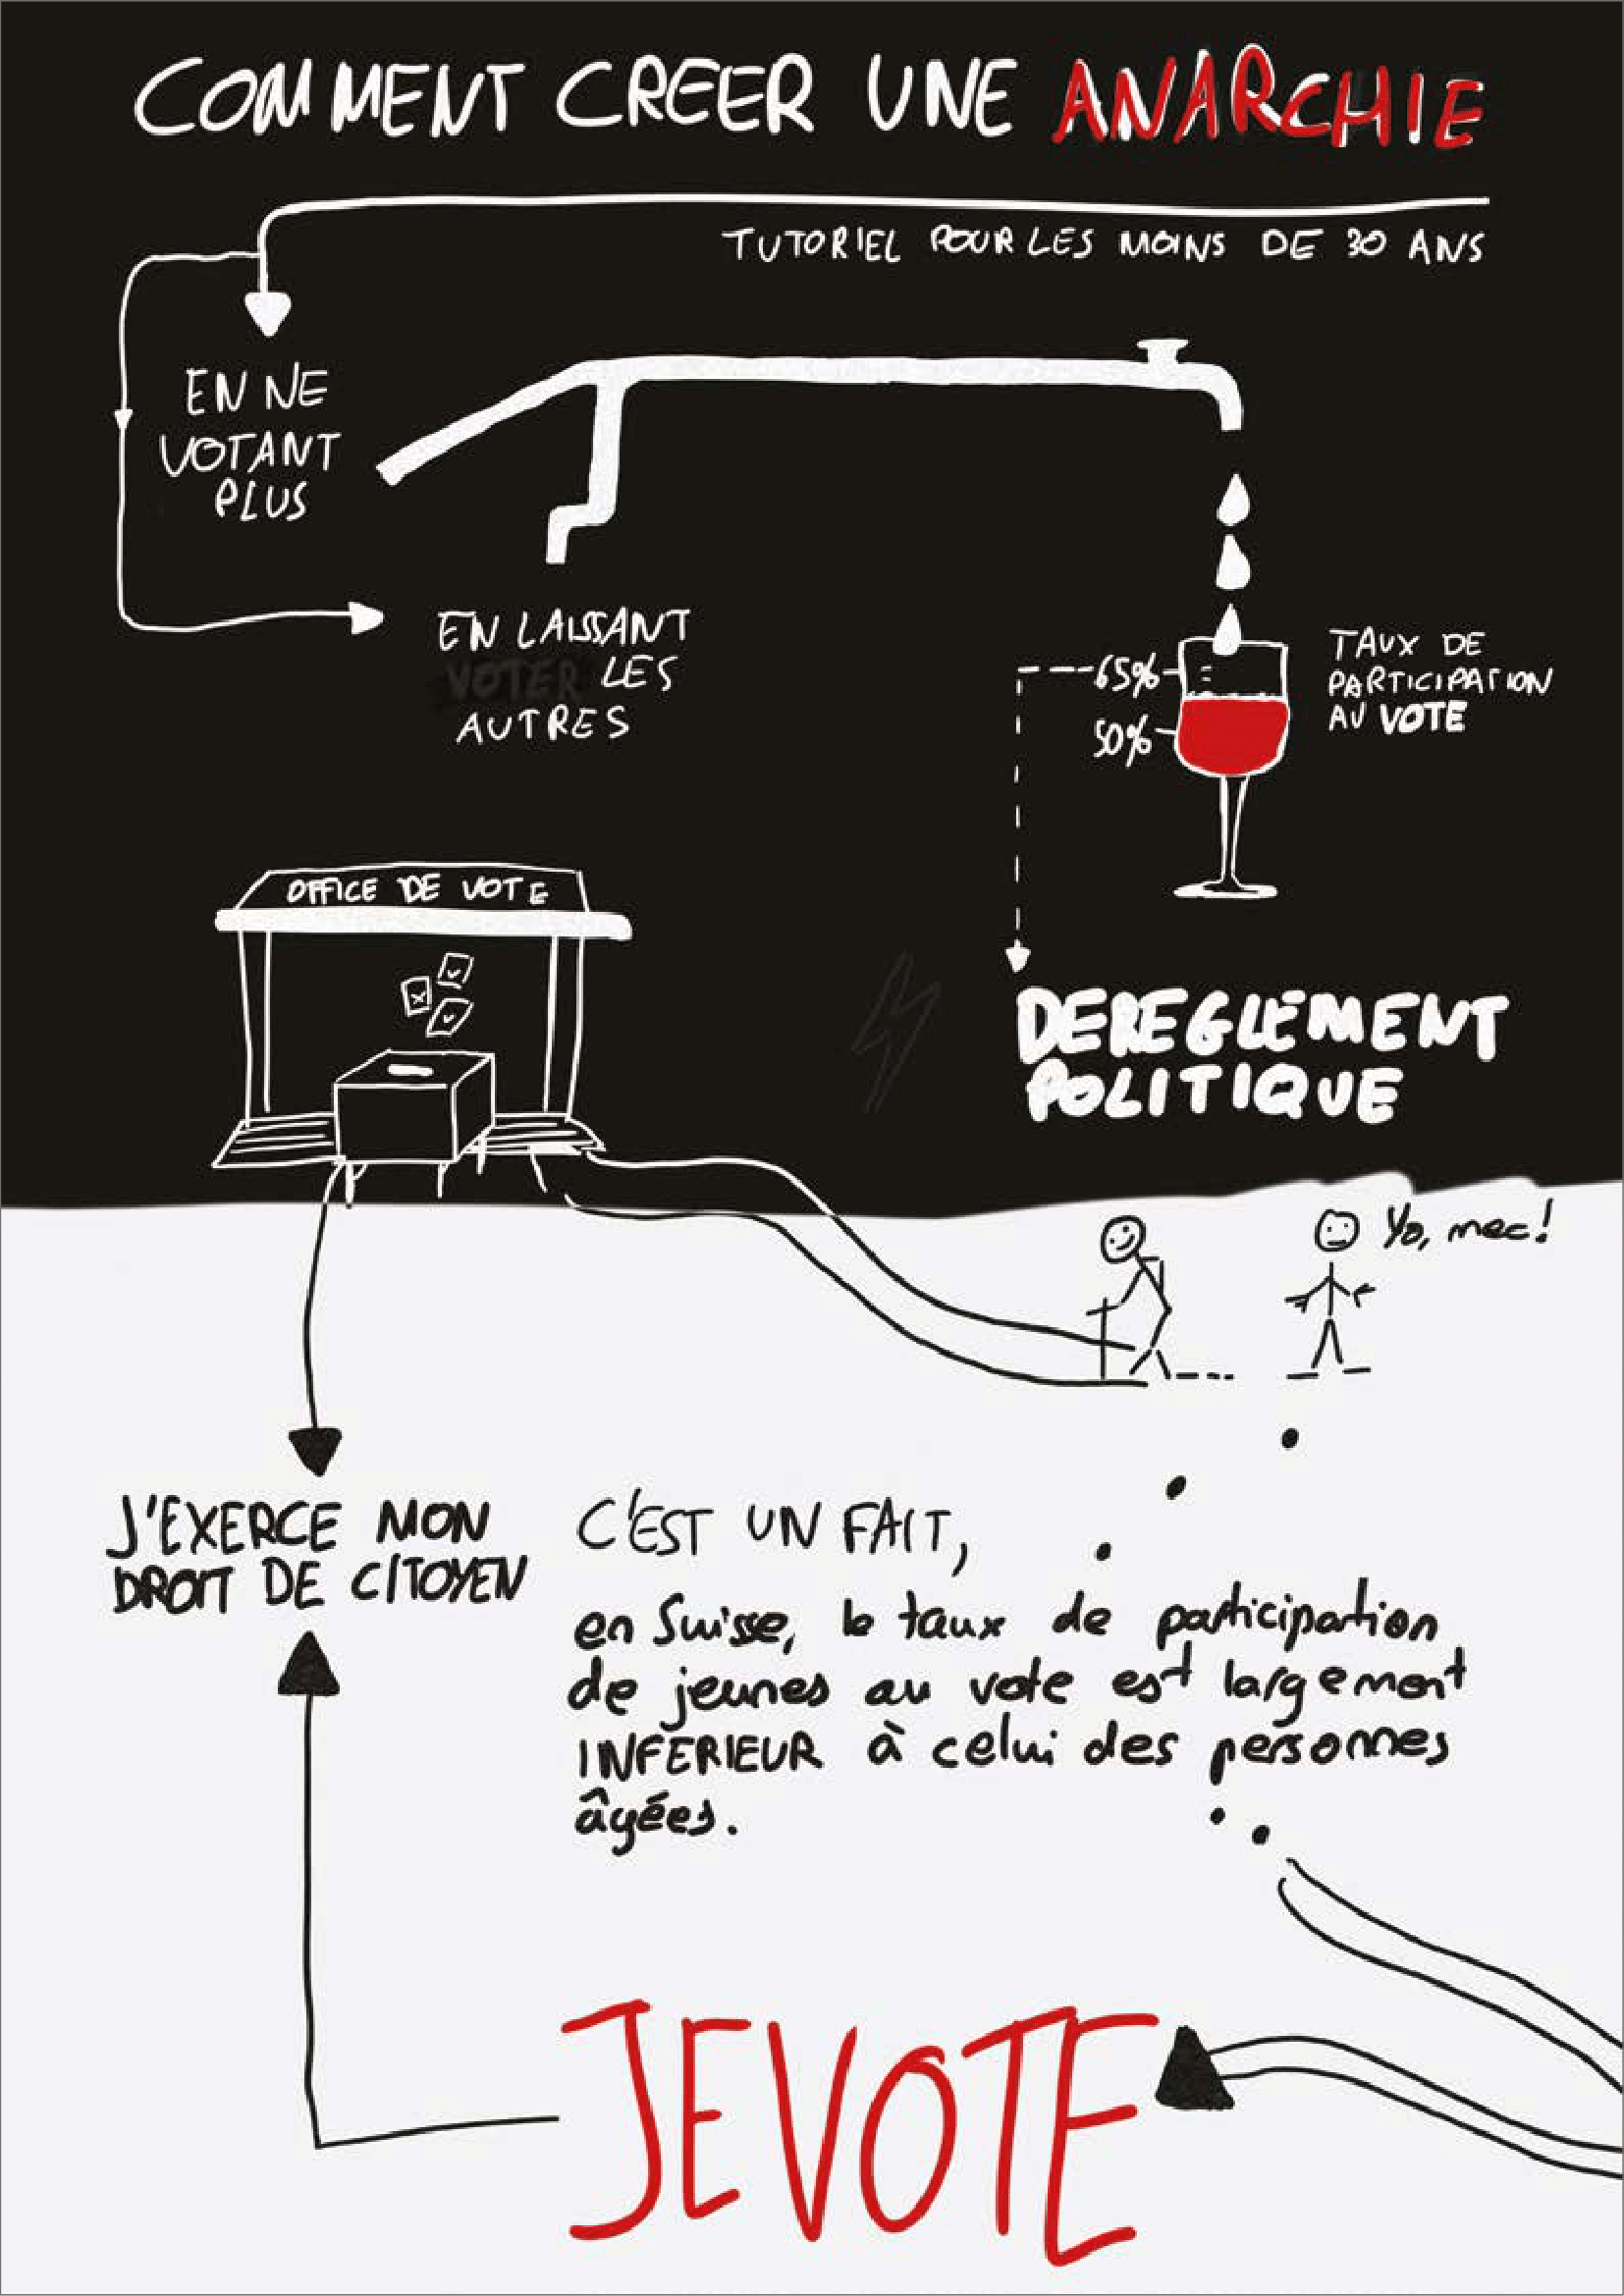 COMMENT CREER UNE ANARCHIE
TUTORIEL POUR LES MOINS DE 30 ANS
EN NE
VOTANT
PLUS
EN LAISSANT
VOTER LES
AUTRES
65%
50%
TAUX DE
PARTICIPATION
AU VOTE
OFFICE DE VOTE
DEREGLEMENT
POLITIQUE
Yo, mec!
J'EXERCE MON
DROIT DE CITOYEN
C'EST UN FAIT,
en Suisse, le taux de participation
de jeunes au vote est largement
INFERIEUR à celui des personnes
âgées.
JEVOTE